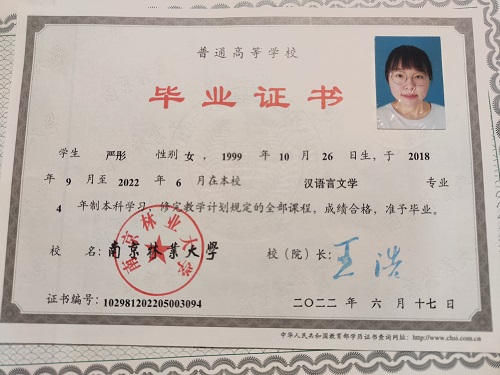 普通高等学校
毕业证书
学生 严彤 性别 女 ，1999 年 10 月 26 日生，于 2018
年 9 月至 2022 年 6 月在本校 汉语言文学 专业
4 年制本科学习，修完教学计划规定的全部课程，成绩合格，准予毕业。
校 名：南京林业大學
校（院）长：王浩
南京林业大学
证书编号：102981202205003094
二〇二二 年 六 月 十七 日
中华人民共和国教育部学历证书查询网址：http://www.chsi.com.cn